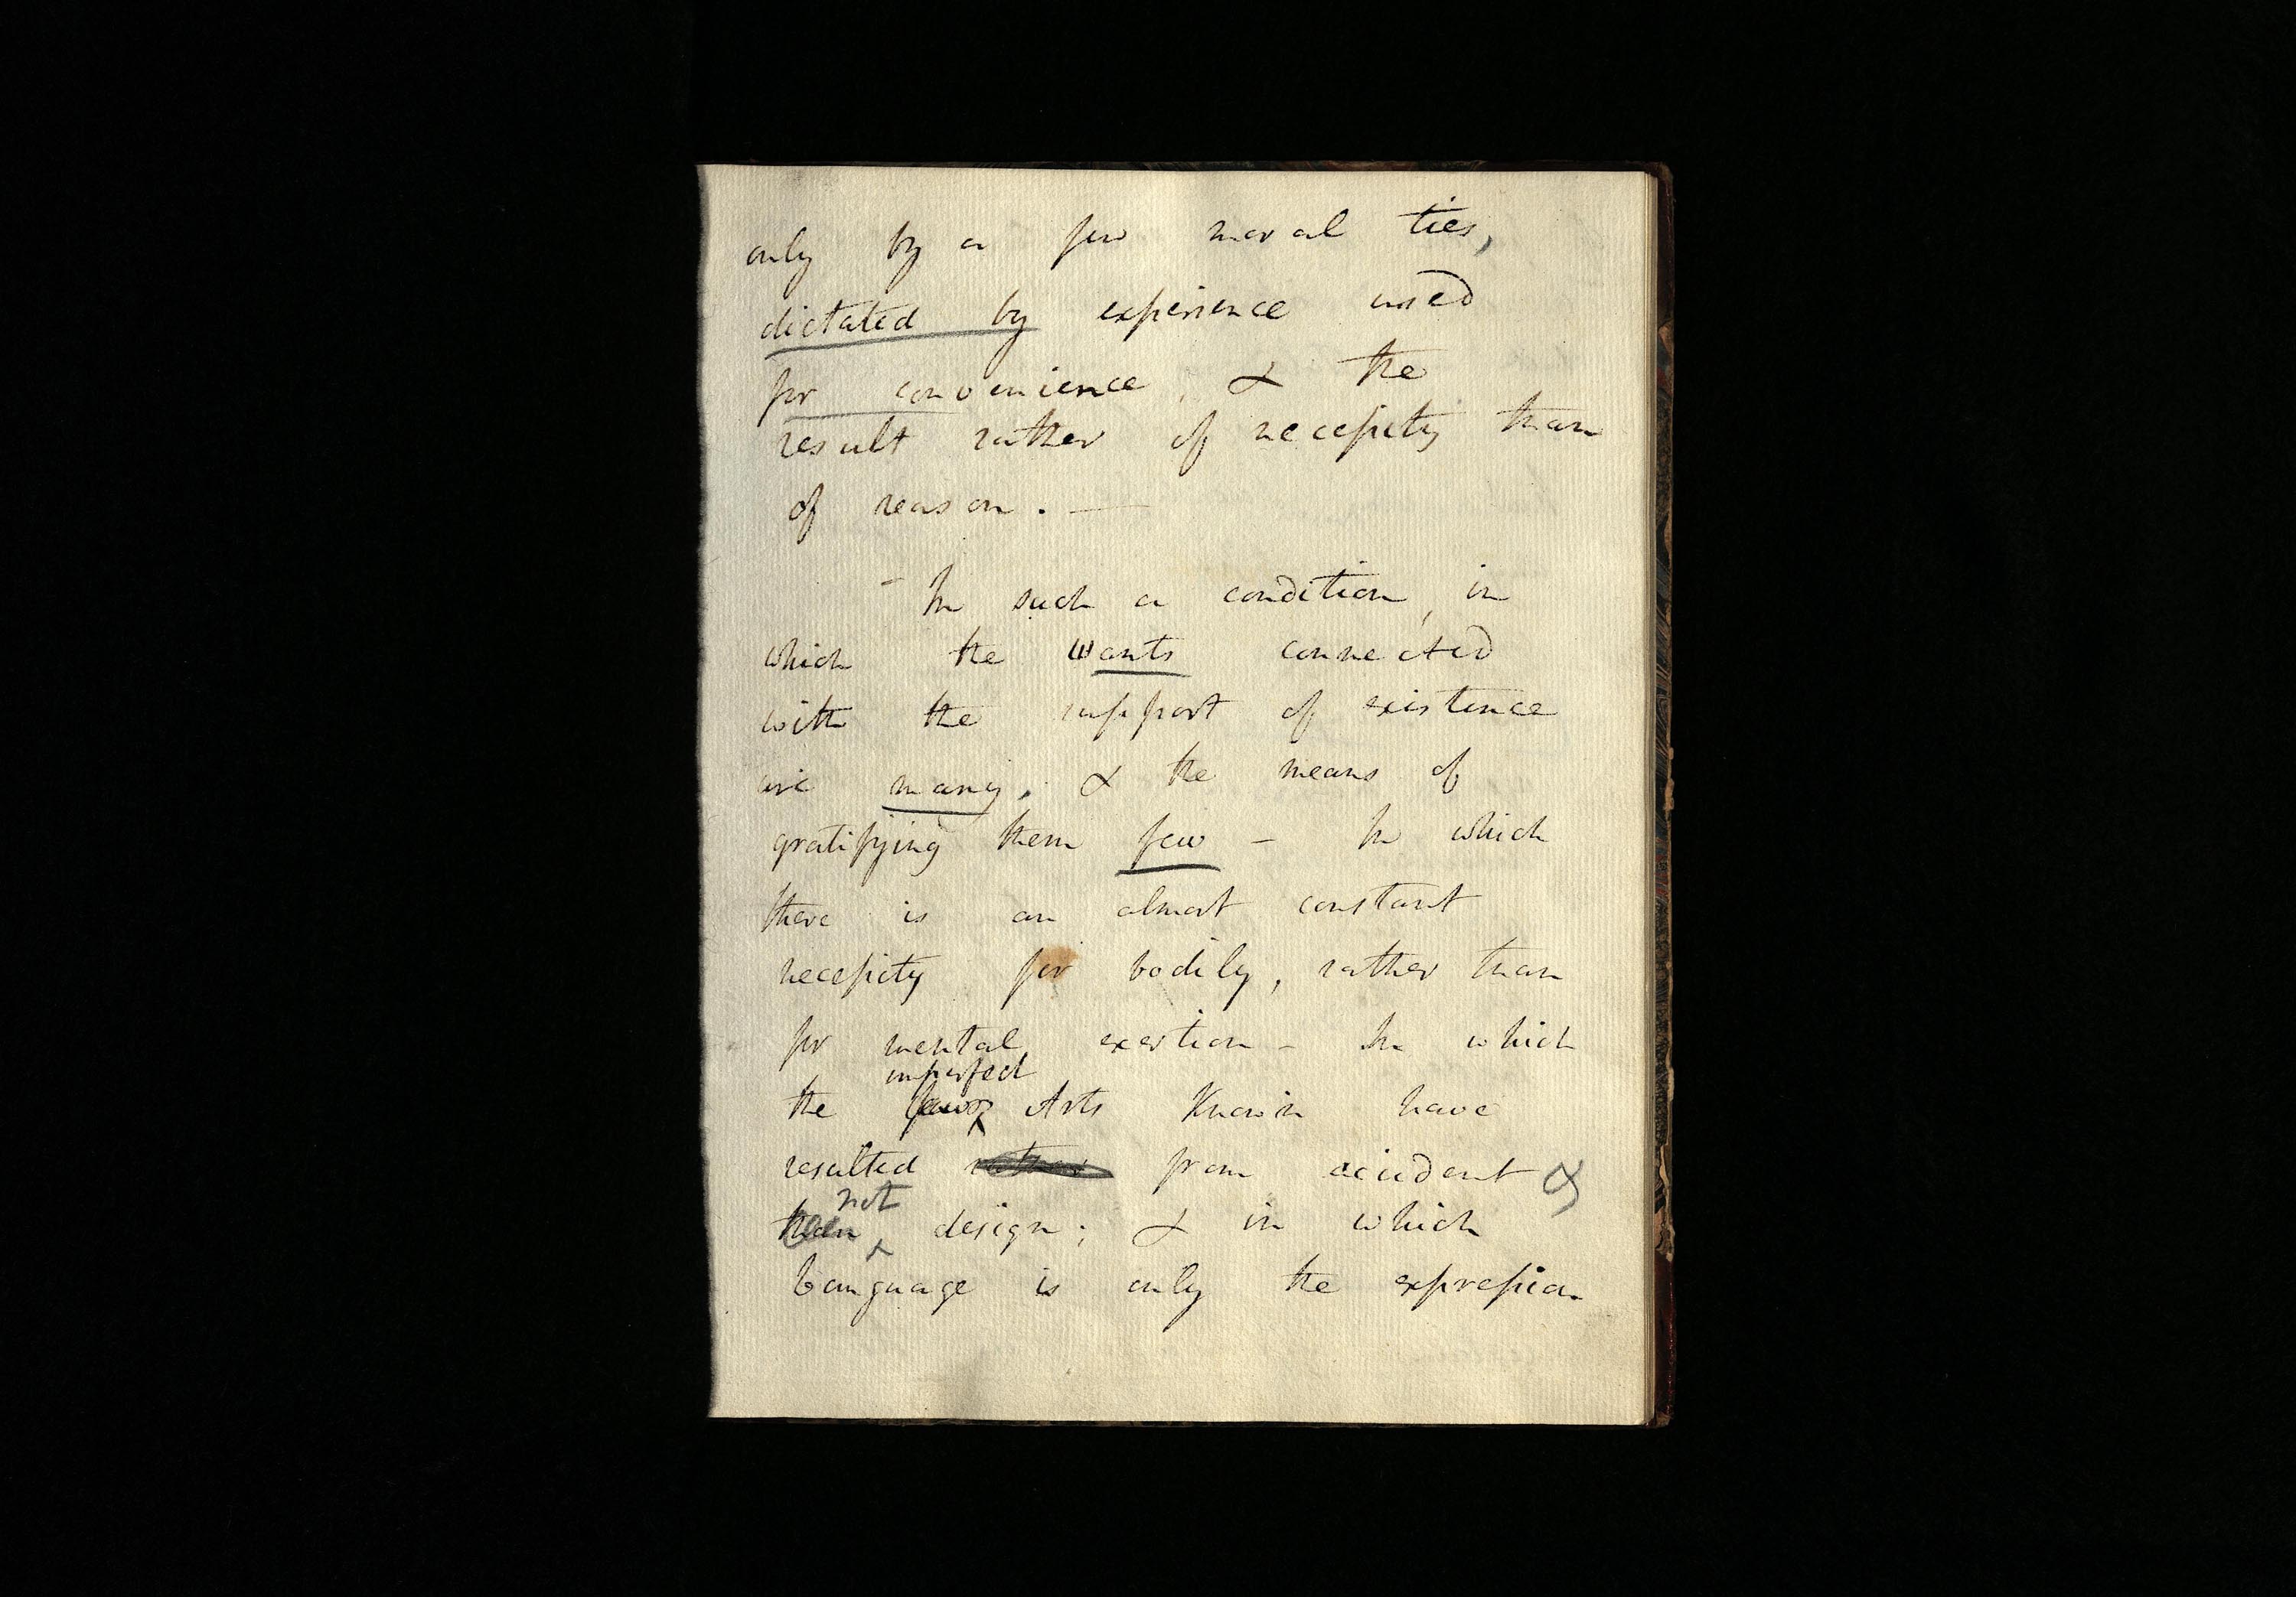 only by a few moral ties,
dictated by experience used
for convenience, & the
result rather of necessity than
of reason. —
- In such a condition, in
which the wants connected
with the support of existence
are many, & the means of
gratifying them few – In which
there is an almost constant
necessity for bodily, rather than
for mental exertion – In which
imperfect
the few Arts Known have
resulted rather from accident &
not
than design; & in which
Language is only the expression